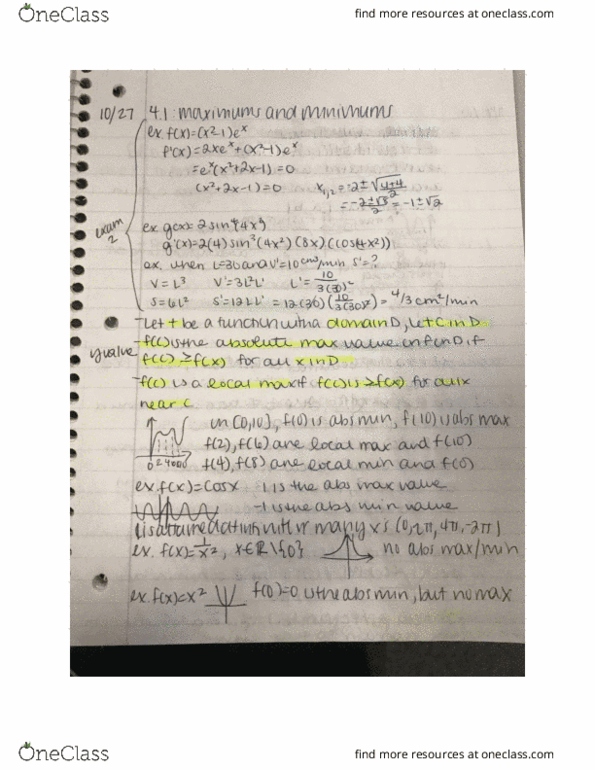 OneClass
find more resources at oneclass.com
10/27 4.1: maximums and minimums
ex. f(x)=(x²-1)eˣ
f'(x)=2xeˣ+(x²-1)eˣ
=eˣ(x²+2x-1)=0
(x²+2x-1)=0 x₁,₂=-2±√4+4/2
=-2±√8/2=-1±√2
exam 2
ex. g(x)=2sin⁴(4x²)
g'(x)=2(4)sin³(4x²)(8x)(cos(4x²))
ex. when L=30 and V'=10 cm³/min S'=?
V=L³ V'=3L²L' L'=10/3(30)²
S=6L² S'=12LL' =12(30)(10/3(30)²)=4/3cm²/min
-Let f be a function with a domain D, let C in D.
y value
-f(c) is the absolute max value on f on D if
f(c)≥f(x) for all x in D
-f(c) is a local max if f(c) is ≥f(x) for all x
near c
on [0,10], f(0) is abs min, f(10) is abs max
f(2), f(6) are local max and f(10)
0 2 4 6 8 10
f(4), f(8) are local min and f(0)
ex. f(x)=cosx 1 is the abs max value
-1 is the abs min value
1 is attained at infinitely many x's (0, 2π, 4π, -2π)
ex. f(x)=1/x², x∈ℝ\{0} no abs max/min
ex. f(x)=x² f(0)=0 is the abs min, but no max
OneClass
find more resources at oneclass.com